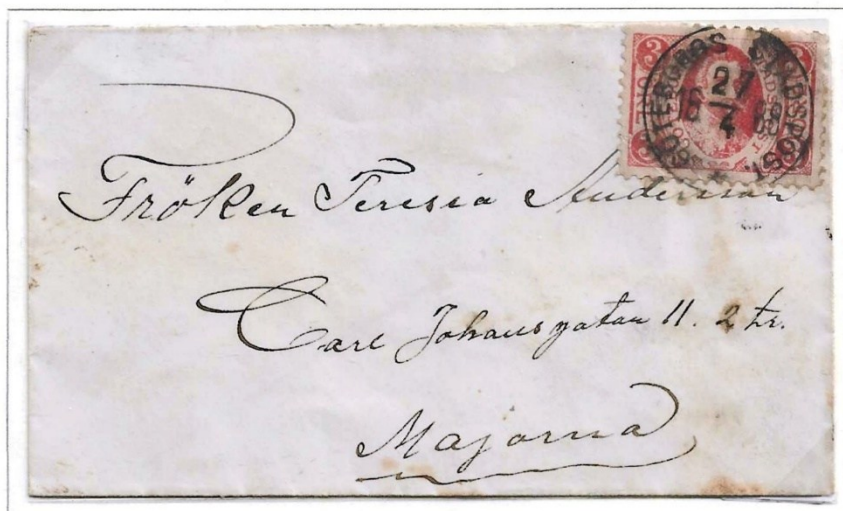 GÖTEBORGS STADSPOST
27
4
3
Fröken Teresia Andersson
Carl Johansgatan 11. 2 tr.
Majorna